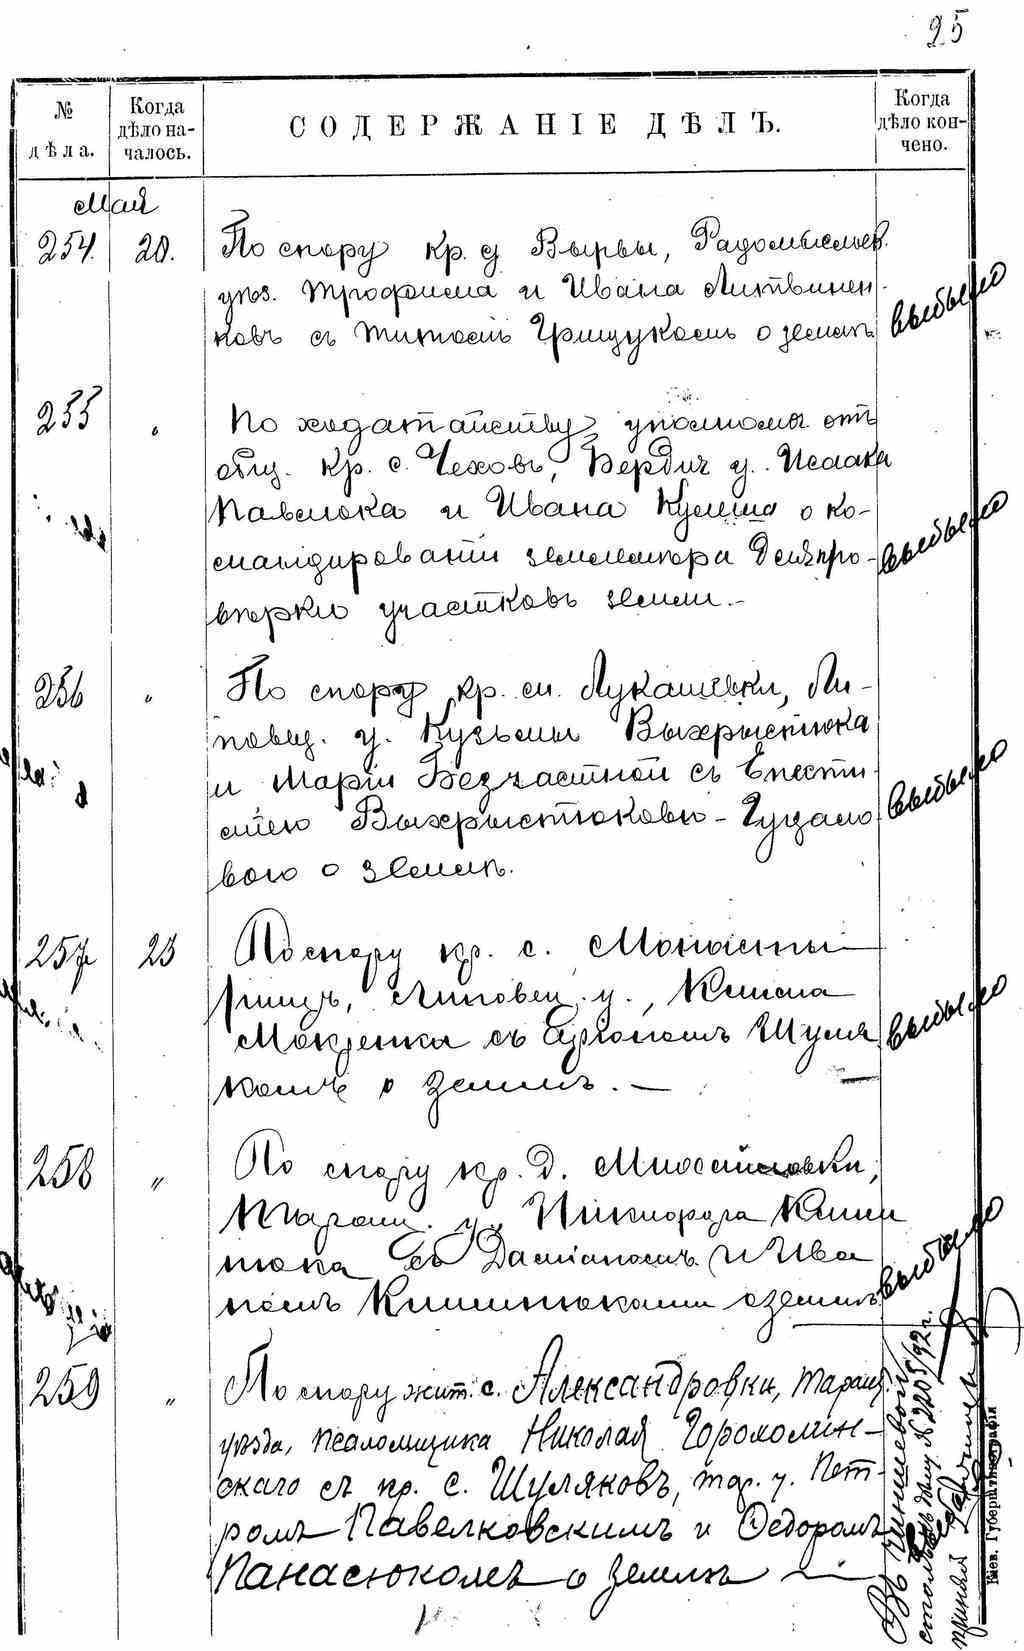 25
№ дѣла.
Когда дѣло началось.
СОДЕРЖАНІЕ ДѢЛЪ.
Когда дѣло кончено.
Мая
254. 20. По спору кр. д Вырвы, Радомысльск.
уѣз. Трофима и Ивана Литвинен-
ковъ съ Титомъ Грищукомъ о землѣ
выбыло
255 " По ходатайству уполномоч. отъ
общ. кр. с. Чеховъ, Бердич у. Исаака
Павлюка и Ивана Кулеша о ко-
мандированіи землемѣра для про-
вѣрки участковъ земли.-
выбыло
256 " По спору кр. м. Лукашевки, Ли-
повец. у. Кузьмы Выхрыстюка
и Маріи Безчастной съ Епести-
міею Выхрыстюковою-Гуцало-
вою о землѣ.
выбыло
257 23 По спору кр. с. Монасты-
рищъ, Липовец. у., Клима
Мокренка съ Шуля
комъ о землѣ. —
выбыло
258 " По спору кр. д.
Таращ. у., Никифора Клим
тюка съ Даміаномъ и Ива
номъ Климтюками о землѣ
выбыло
259 " По спору жит. с. Александровки, Таращ.
уѣзда, псаломщика Николая Горохолин-
скаго съ кр. с. Шуляковъ, тог. у. Пет-
ромъ Павелковскимъ и Ѳедоромъ
Панасюкомъ о землѣ —
Въ чиншевой
столъ къ дѣлу № 2205/92 г.
принялъ
Кіев. Губерн. Типографія